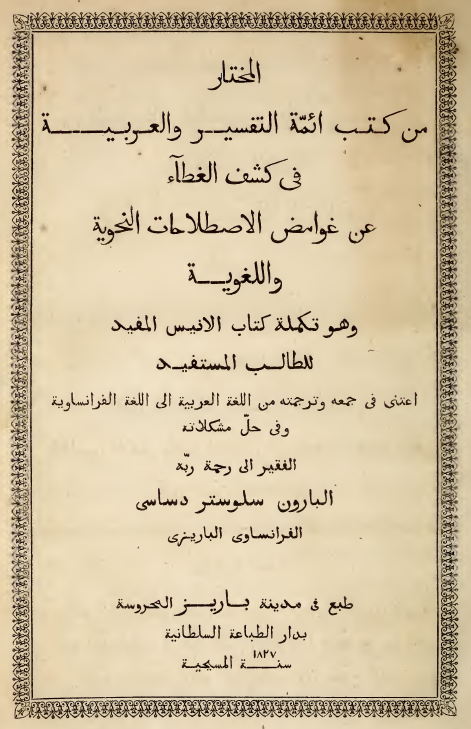 المختار
من كتب ائمّة التفسير والعربية
فى كشف الغطآء
عن غوامض الاصطلاحات النحوية
واللغوية
وهو تكملة كتاب الانيس المفيد
للطالب المستفيد
اعتنى فى جمعه وترجمته من اللغة العربية الى اللغة الفرانساوية
وفى حلّ مشكلاته
الفقير الى رحمة ربّه
البارون سلوستر دساسى
الفرانساوى الباريزى
طبع فى مدينة باريز المحروسة
بدار الطباعة السلطانية
سنة ١٨٢٧ المسيحية